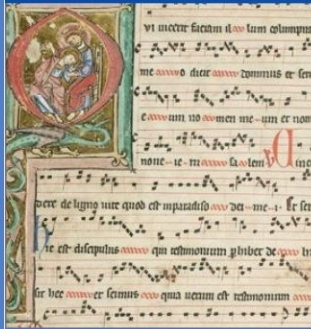 vi incerit faciam il lum columpnam
me o dicit dominus et scri
e um no men me um et nomen
noue ie ru sa lem V Q
dere de ligno uite quod est in paradiso dei me i. Et scri
hic est discipulus qui testimonium phibet de h
sit hec et scimus quia uerum est testimonium